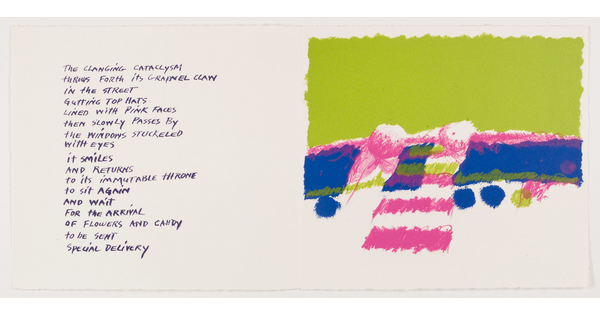 THE CLANGING CATACLYSM
THROWS FORTH ITS GRAVEL CLAW
IN THE STREET
GUTTING TOP HATS
LINED WITH PINK FACES
THEN SLOWLY PASSES BY
THE WINDOWS STUCKELED
WITH EYES
IT SMILES
AND RETURNS
TO ITS IMMUTABLE THRONE
TO SIT AGAIN
AND WAIT
FOR THE ARRIVAL
OF FLOWERS AND CANDY
TO BE SENT
SPECIAL DELIVERY